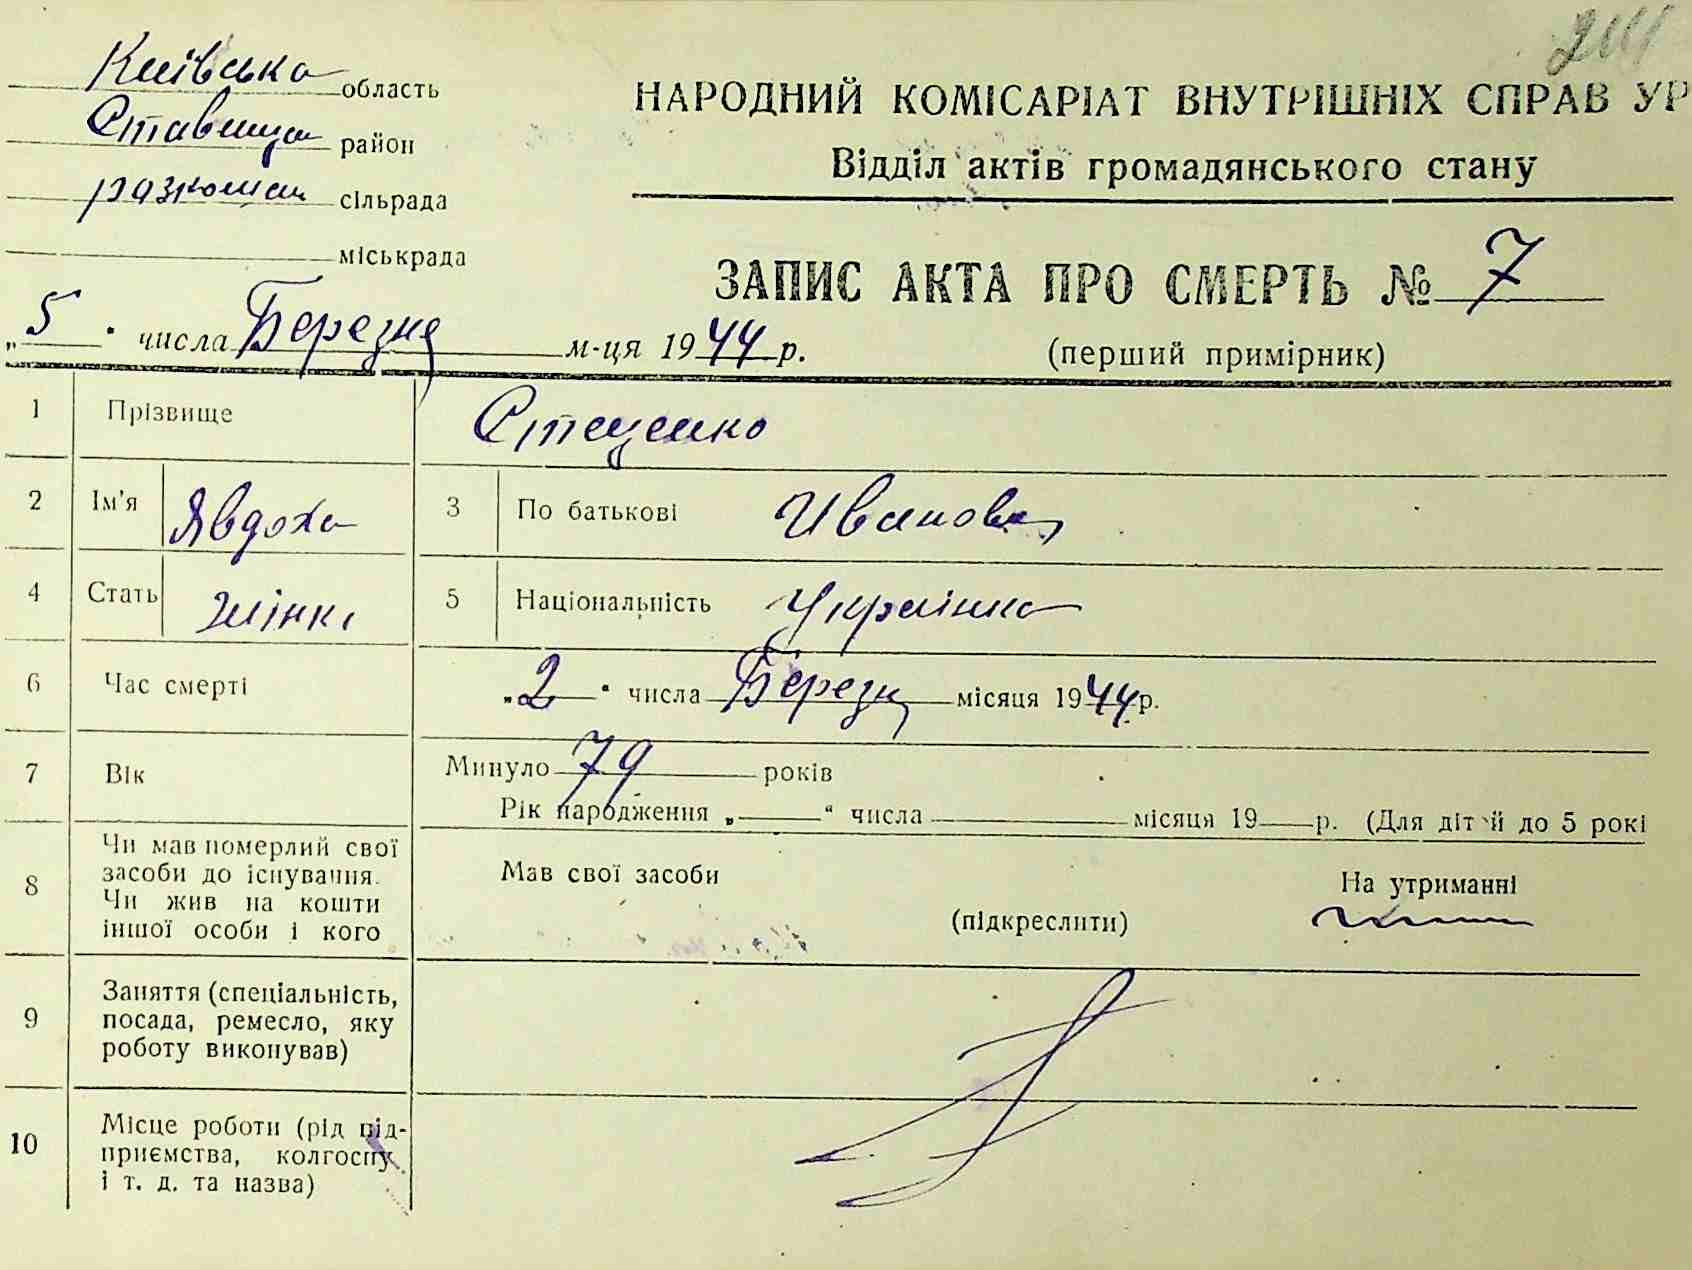 Київська область
Ставище район
сільрада
міськрада
НАРОДНИЙ КОМІСАРІАТ ВНУТРІШНІХ СПРАВ УР
Відділ актів громадянського стану
ЗАПИС АКТА ПРО СМЕРТЬ № 7
„5" числа Березня м-ця 1944 р.
(перший примірник)
1 Прізвище Стеценко
2 Ім'я Явдоха 3 По батькові Иванова
4 Стать жінк 5 Національність Українка
6 Час смерті „2" числа Березня місяця 1944 р.
7 Вік Минуло 79 років
Рік народження „ " числа місяця 19 р. (Для дітей до 5 рокі
8 Чи мав померлий свої
засоби до існування.
Чи жив на кошти
іншої особи і кого
Мав свої засоби
(підкреслити)
На утриманні
9 Заняття (спеціальність,
посада, ремесло, яку
роботу виконував)
10 Місце роботи (рід під-
приємства, колгоспу
і т. д. та назва)